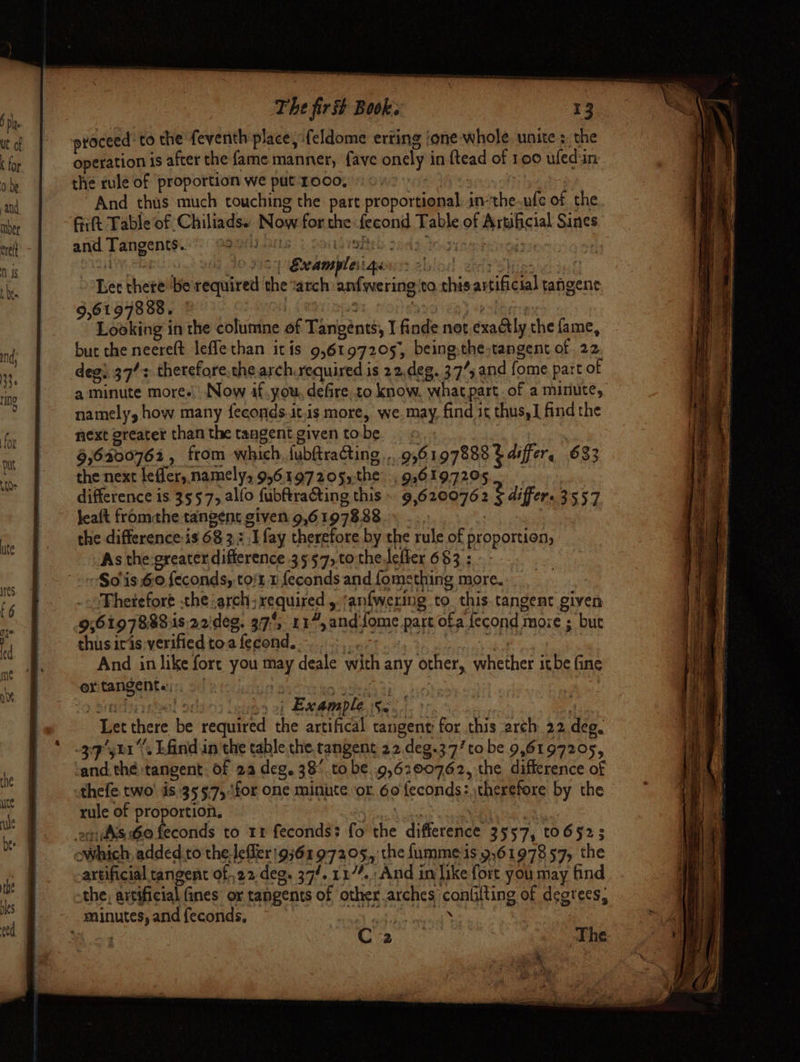 The first Book. 13
proceed to the ſeventh place, ſeldome erring one whole unite; the
operation is after the ſame manner, ſave onely in ſtead of 100 uſed in
the rule of proportion we put 1000.
And thus much touching the part proportional in the uſe of the
firſt Table of Chiliads. Now for the ſecond Table of Artificial Sines
and Tangents.
Example 4.
Let there be required the arch anſwering to this artificial tangent
9,6197888.
Looking in the columne of Tangents, I finde not exactly the ſame,
but the neereſt leſſe than it is 9,6197205, being the tangent of 22
deg. 37′: therefore the arch required is 22 deg. 37′, and ſome part of
a minute more. Now if you deſire to know what part of a minute,
namely, how many ſeconds it is more, we may find it thus, I find the
next greater than the tangent given to be
9,6200762, from which ſubſtracting 9,6197888 } differ. 683
the next leſſer, namely, 9,6197205, the 9,6197205
difference is 3557, alſo ſubſtracting this 9,6200762 } differ. 3557
leaſt from the tangent given 9,6197888
the difference is 683: I ſay therefore by the rule of proportion,
As the greater difference 3557, to the leſſer 683:
So is 60 ſeconds, to 11 ſeconds and ſomething more.
Therefore the arch required, anſwering to this tangent given
9,6197888 is 22 deg. 37′, 11″, and ſome part of a ſecond more; but
thus it is verified to a ſecond.
And in like ſort you may deale with any other, whether it be ſine
or tangent.
Example 5.
Let there be required the artifical tangent for this arch 22 deg.
37′, 11″. I find in the table the tangent 22 deg. 37′ to be 9,6197205,
and the tangent of 22 deg. 38′ to be 9,6200762, the difference of
theſe two is 3557, for one minute or 60 ſeconds: therefore by the
rule of proportion.
As 60 ſeconds to 11 ſeconds: ſo the difference 3557, to 652;
which added to the leſſer 9,6197205, the ſumme is 9,6197857, the
artificial tangent of 22 deg. 37′. 11″. And in like ſort you may find
the artificial ſines or tangents of other arches conſiſting of degrees,
minutes, and ſeconds.
C 2 The